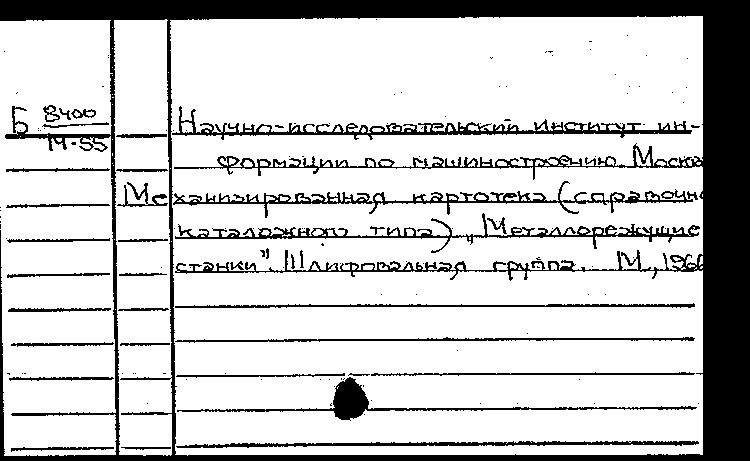 Б 8400
14-55
Научно-исследовательский институт ин-
формации по машиностроению. Москва
Механизированная картотека (справочно
каталожного типа) „Металлорежущие
станки". Шлифовальная группа. М., 1966